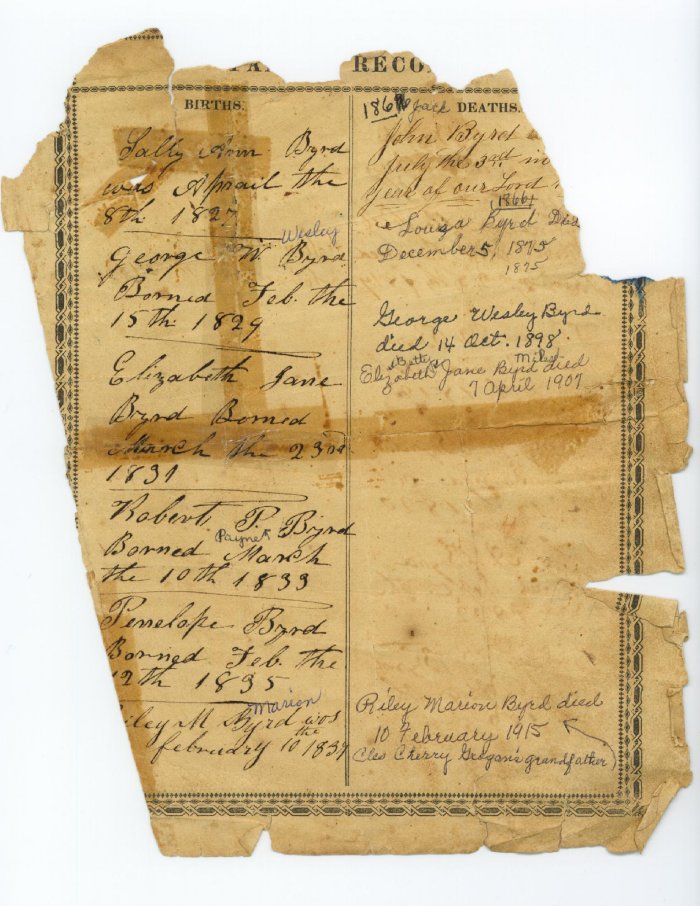 RECO
BIRTHS.
Sally Ann Byrd
was Aprail the
8th 1827
Wesley
George W. Byrd
Borned Feb. the
15th 1829
Elizabeth Jane
Byrd Borned
March the 23rd
1831
Robert P. Byrd
Payne
Borned March
the 10th 1833
Penelope Byrd
Borned Feb. the
12th 1835
Marion
iley M Byrd was
the
february 10 1837
DEATHS.
John Byrd
July the 3rd in
year of our Lord
1866
Louiza Byrd Died
December 5, 1875
1875
George Wesley Byrd
died 14 Oct. 1898
Betty Miles
Elizabeth Jane Byrd died
7 April 1907
Riley Marion Byrd died
10 February 1915
Cleo Cherry Grogan's grandfather